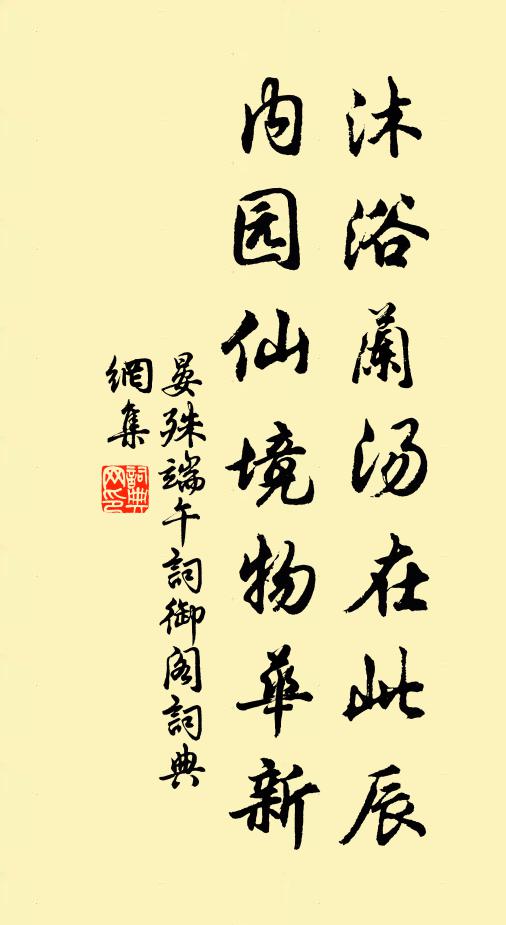 沐浴蘭汤在此辰
内园仙境物華新
晏殊端午詞御阁詞典
網集
詞典
网印